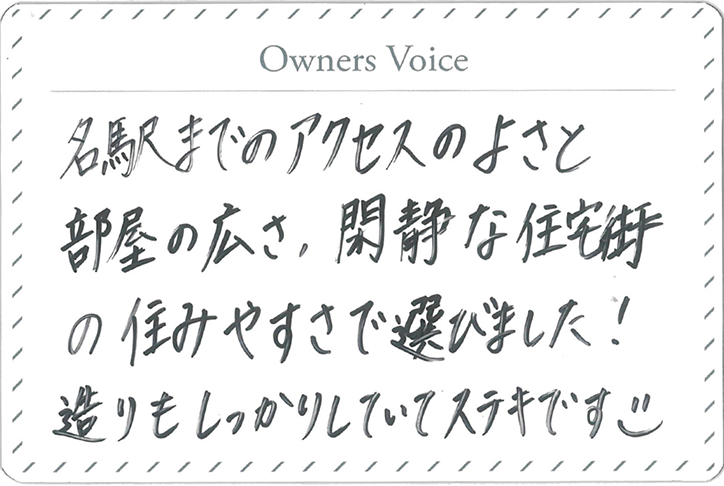 Owners Voice
名駅までのアクセスのよさと
部屋の広さ、閑静な住宅街
の住みやすさで選びました!
造りもしっかりしていてステキです